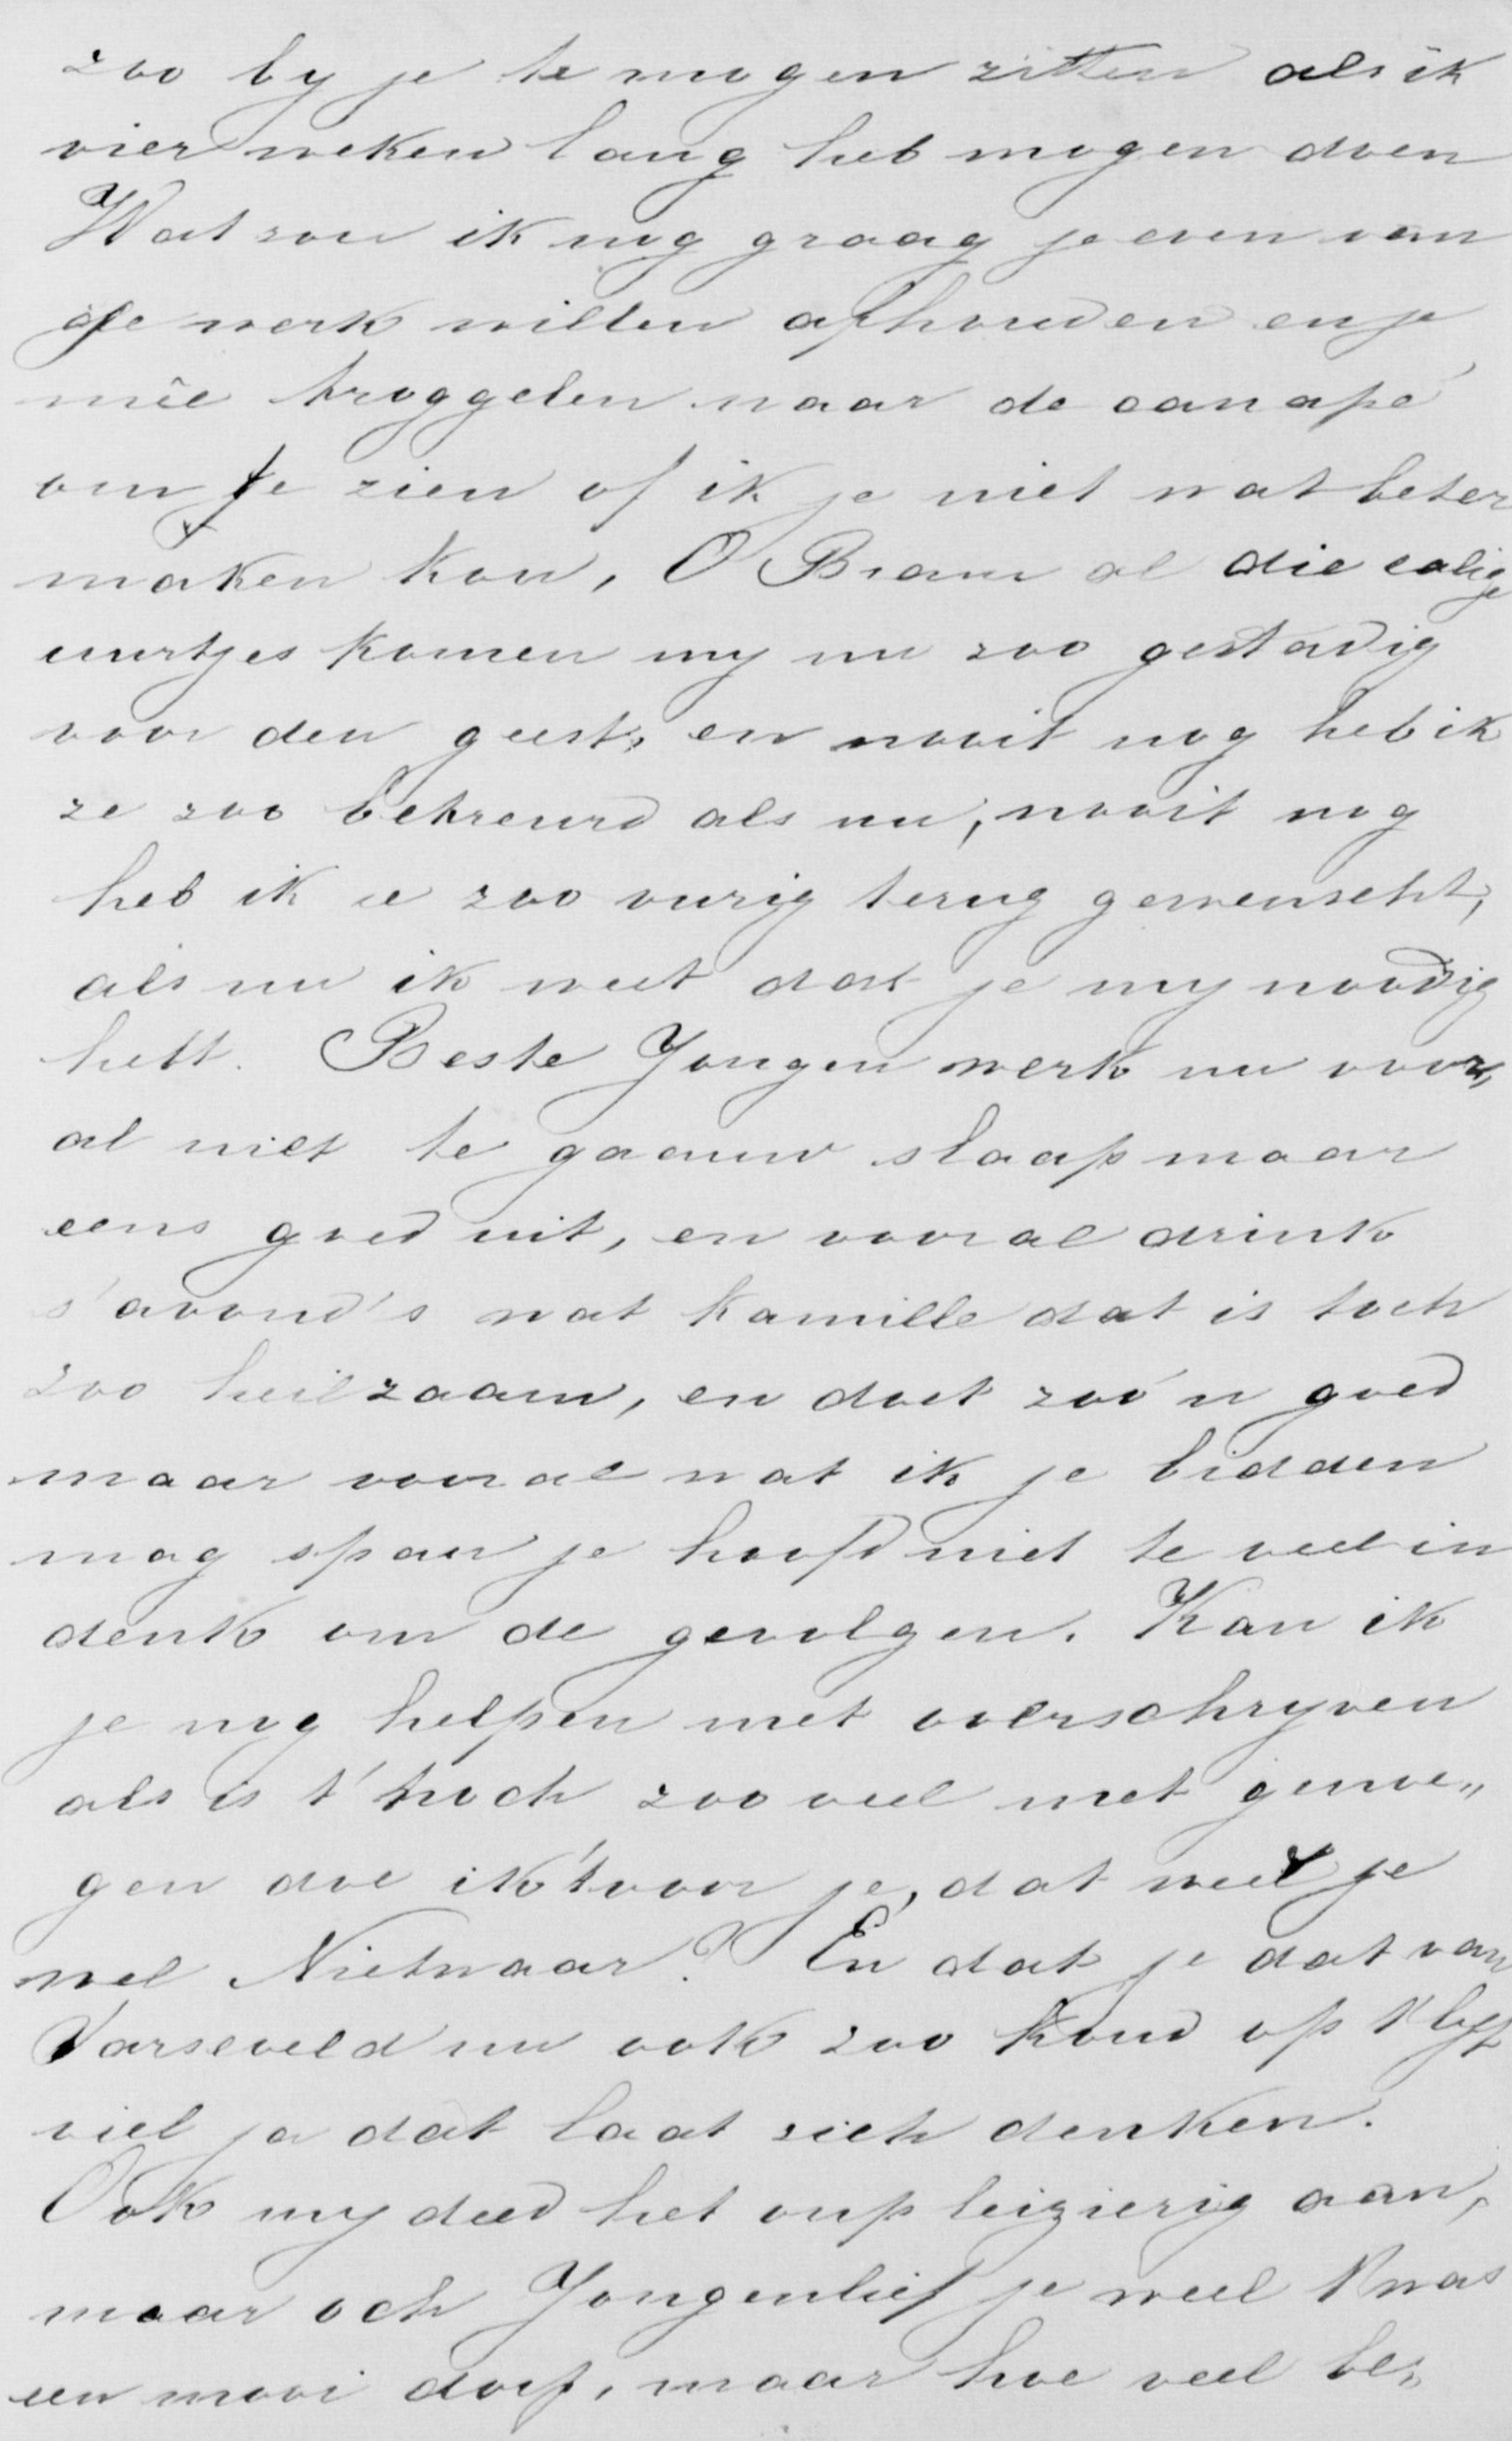 zoo by je te mogen zitten als ik
vier weken lang heb mogen doen
Wat zou ik nog graag je even van
je werk willen afhouden en je
mêe troggelen naar de canapé
om te zien of ik je niet wat beter
maken kon, O Bram al die zalige
uurtjes komen my nu zoo gestadig
voor den geest, en nooit nog heb ik
ze zoo betreurd als nu, nooit nog
heb ik ze zoo vurig terug gewenscht,
als nu ik weet dat je my noodig
hebt. Beste Jongen werk nu voor„
al niet te gaauw slaap maar
eens goed uit, en vooral drink
s'avond's wat kamille dat is toch
zoo heilzaam, en doet zoo'n goed
maar vooral wat ik je bidden
mag span je hoofd niet te veel in
denk om de gevolgen. Kan ik
je nog helpen met overschryven
als is t' noch zoo veel met genoe„
gen doe ik 't voor je, dat weet je
wel Nietwaar? En dat je dat van
Varseveld nu ook zoo koud op t' lyf
viel ja dat laat zich denken.
Ook my deed het onpleizierig aan,
maar och Jongenlief je weet 't was
een mooi dorp, maar hoe veel be„